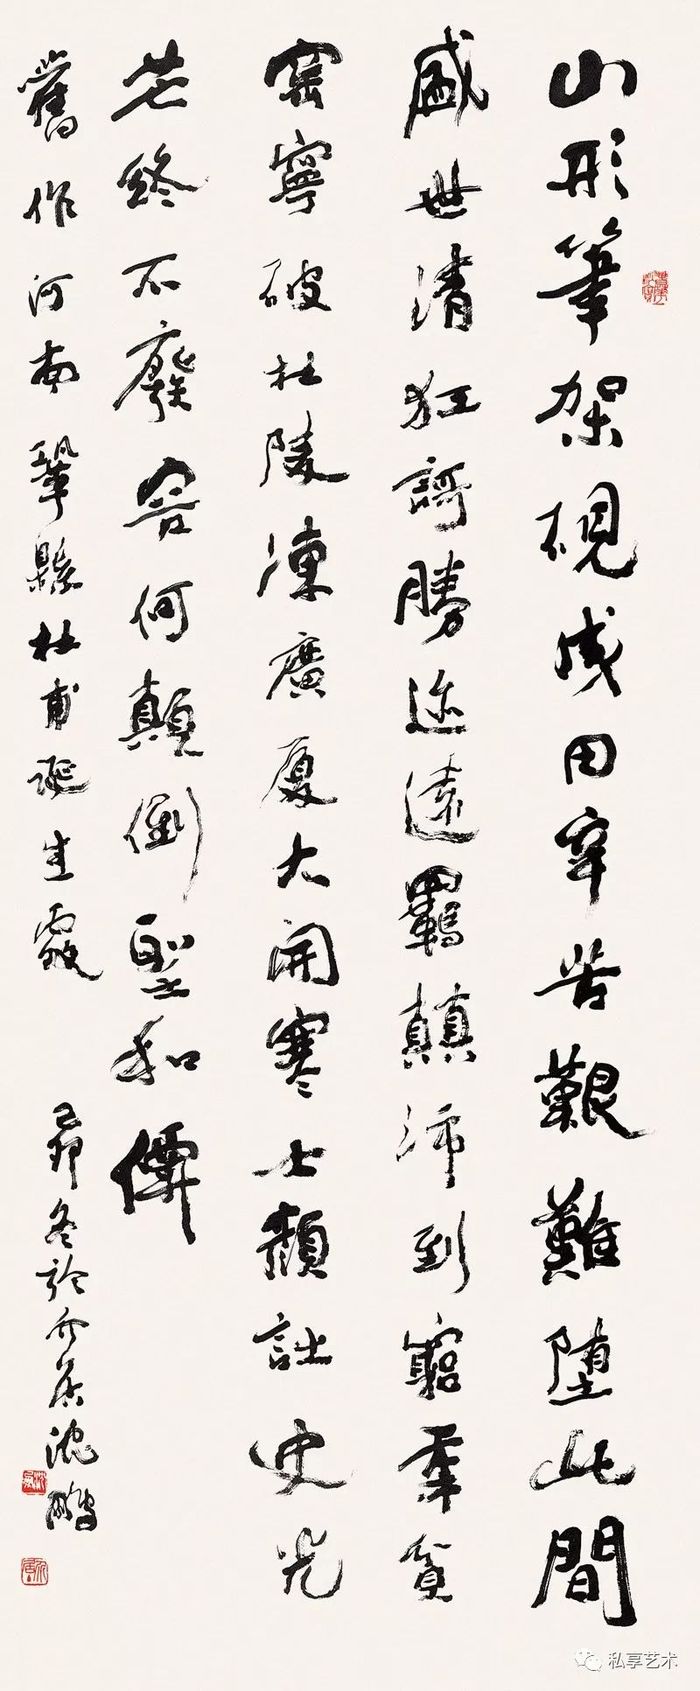 山形筆架硯成田辛苦艱難墮此間
盛世清狂勝迹遠羈顛沛到窮貧
窰寧破杜陵凍廣厦大開寒士顏詩史光
芒終不廢容何顛倒聖和僊
舊作河南鞏縣杜甫誕生處 己卯冬於介居沈鵬
私享艺术